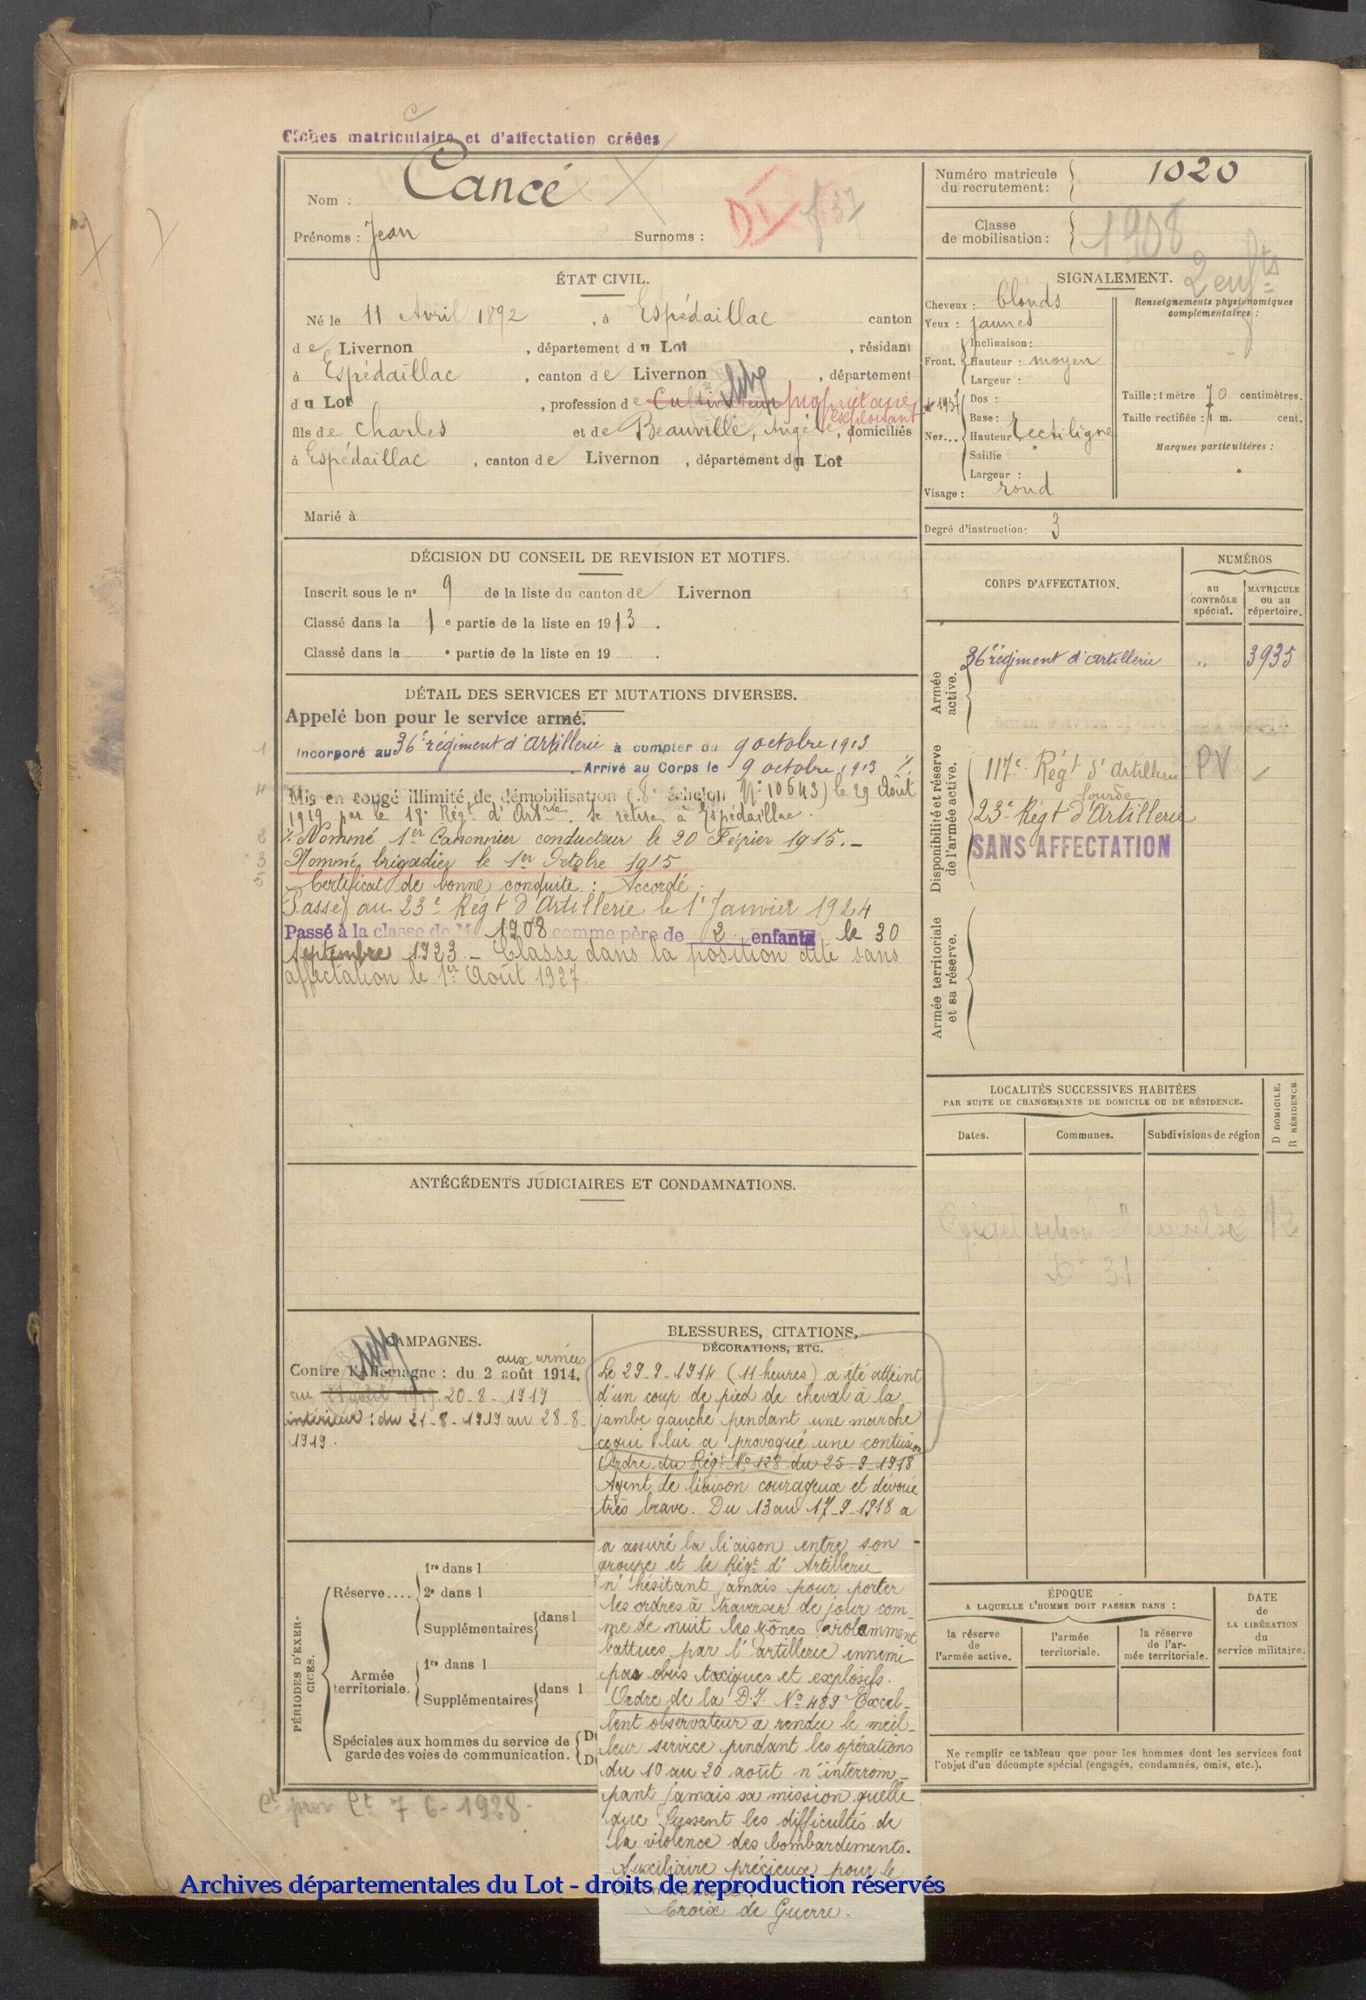 Fiches matriculaire et d'affectation créées
Nom : Cancé
Prénoms : Jean Surnoms :
D I f 37
Numéro matricule du recrutement : 1020
Classe de mobilisation : 1908
2 enfts
ÉTAT CIVIL.
Né le 11 Avril 1892, à Espédaillac canton
de Livernon, département du Lot, résidant
à Espédaillac, canton de Livernon, département
du Lot, profession de Cultivateur propriétaire exploitant
fils de Charles et de Beauville, Angèle, domiciliés
à Espédaillac, canton de Livernon, département du Lot
Marié à
SIGNALEMENT.
Cheveux : blonds
Yeux : jaunes
Front. Inclinaison :
Hauteur : moyen
Largeur :
Nez... Dos :
Base :
Hauteur rectiligne
Saillie
Largeur :
Visage : rond
Renseignements physionomiques complémentaires :
Taille : 1 mètre 70 centimètres.
Taille rectifiée : 1 m. cent.
Marques particulières :
Degré d'instruction : 3
DÉCISION DU CONSEIL DE REVISION ET MOTIFS.
Inscrit sous le n° 9 de la liste du canton de Livernon
Classé dans la 1e partie de la liste en 1913.
Classé dans la e partie de la liste en 19 .
DÉTAIL DES SERVICES ET MUTATIONS DIVERSES.
Appelé bon pour le service armé.
Incorporé au 36e régiment d'Artillerie à compter du 9 octobre 1913
Arrivé au Corps le 9 octobre 1913
Mis en congé illimité de démobilisation (8e échelon N° 10643) le 29 Août
1919 par le 18e Régt d'Artrie. Se retire à Espédaillac.
Nommé 1er Canonnier conducteur le 20 Février 1915.-
Nommé brigadier le 1er Octobre 1915
Certificat de bonne conduite : Accordé.
Passé au 23e Régt d'Artillerie le 1r Janvier 1924
Passé à la classe de M 1908 comme père de 2 enfants le 30
septembre 1923 - Classé dans la position dite sans
affectation le 1er Août 1927.
CORPS D'AFFECTATION.
NUMÉROS
au CONTRÔLE spécial.
MATRICULE ou au répertoire.
Armée active.
36e régiment d'artillerie " 3935
Disponibilité et réserve de l'armée active.
117e Régt d'Artillerie lourde PV
23e Régt d'Artillerie
SANS AFFECTATION
Armée territoriale et sa réserve.
LOCALITÉS SUCCESSIVES HABITÉES
PAR SUITE DE CHANGEMENTS DE DOMICILE OU DE RÉSIDENCE.
Dates. Communes. Subdivisions de région
D DOMICILE. R RÉSIDENCE
ANTÉCÉDENTS JUDICIAIRES ET CONDAMNATIONS.
CAMPAGNES.
aux armées
Contre l'Allemagne : du 2 août 1914,
au 20-8-1919
intérieur : du 21-8-1919 au 28-8-
1919.
BLESSURES, CITATIONS,
DÉCORATIONS, ETC.
Le 29-9-1914 (11 heures) a été atteint
d'un coup de pied de cheval à la
jambe gauche pendant une marche
ce qui lui a provoqué une contusion
Ordre du Régt N° 128 du 25-9-1918
Agent de liaison courageux et dévoué
très brave. Du 13 au 17-9-1918 a
a assuré la liaison entre son
groupe et le Régt d'Artillerie
n'hésitant jamais pour porter
les ordres à traverser de jour com-
me de nuit les zônes violemment
battues par l'artillerie ennemi
par obus toxiques et explosifs.
Ordre de la D.I. N° 489 Excel-
lent observateur a rendu le meil-
leur service pendant les opérations
du 10 au 20 août n'interrom-
pant jamais sa mission quelle
que fussent les difficultés de
la violence des bombardements.
Auxiliaire précieux pour le
Croix de Guerre.
PÉRIODES D'EXERCICES.
Réserve.... 1re dans l
2e dans l
Supplémentaires dans l
Armée territoriale. 1re dans l
Supplémentaires dans l
Spéciales aux hommes du service de garde des voies de communication. D
D
ÉPOQUE
A LAQUELLE L'HOMME DOIT PASSER DANS :
la réserve de l'armée active.
l'armée territoriale.
la réserve de l'armée territoriale.
DATE de LA LIBÉRATION du service militaire.
Ne remplir ce tableau que pour les hommes dont les services font
l'objet d'un décompte spécial (engagés, condamnés, omis, etc.).
7-6-1928
Archives départementales du Lot - droits de reproduction réservés